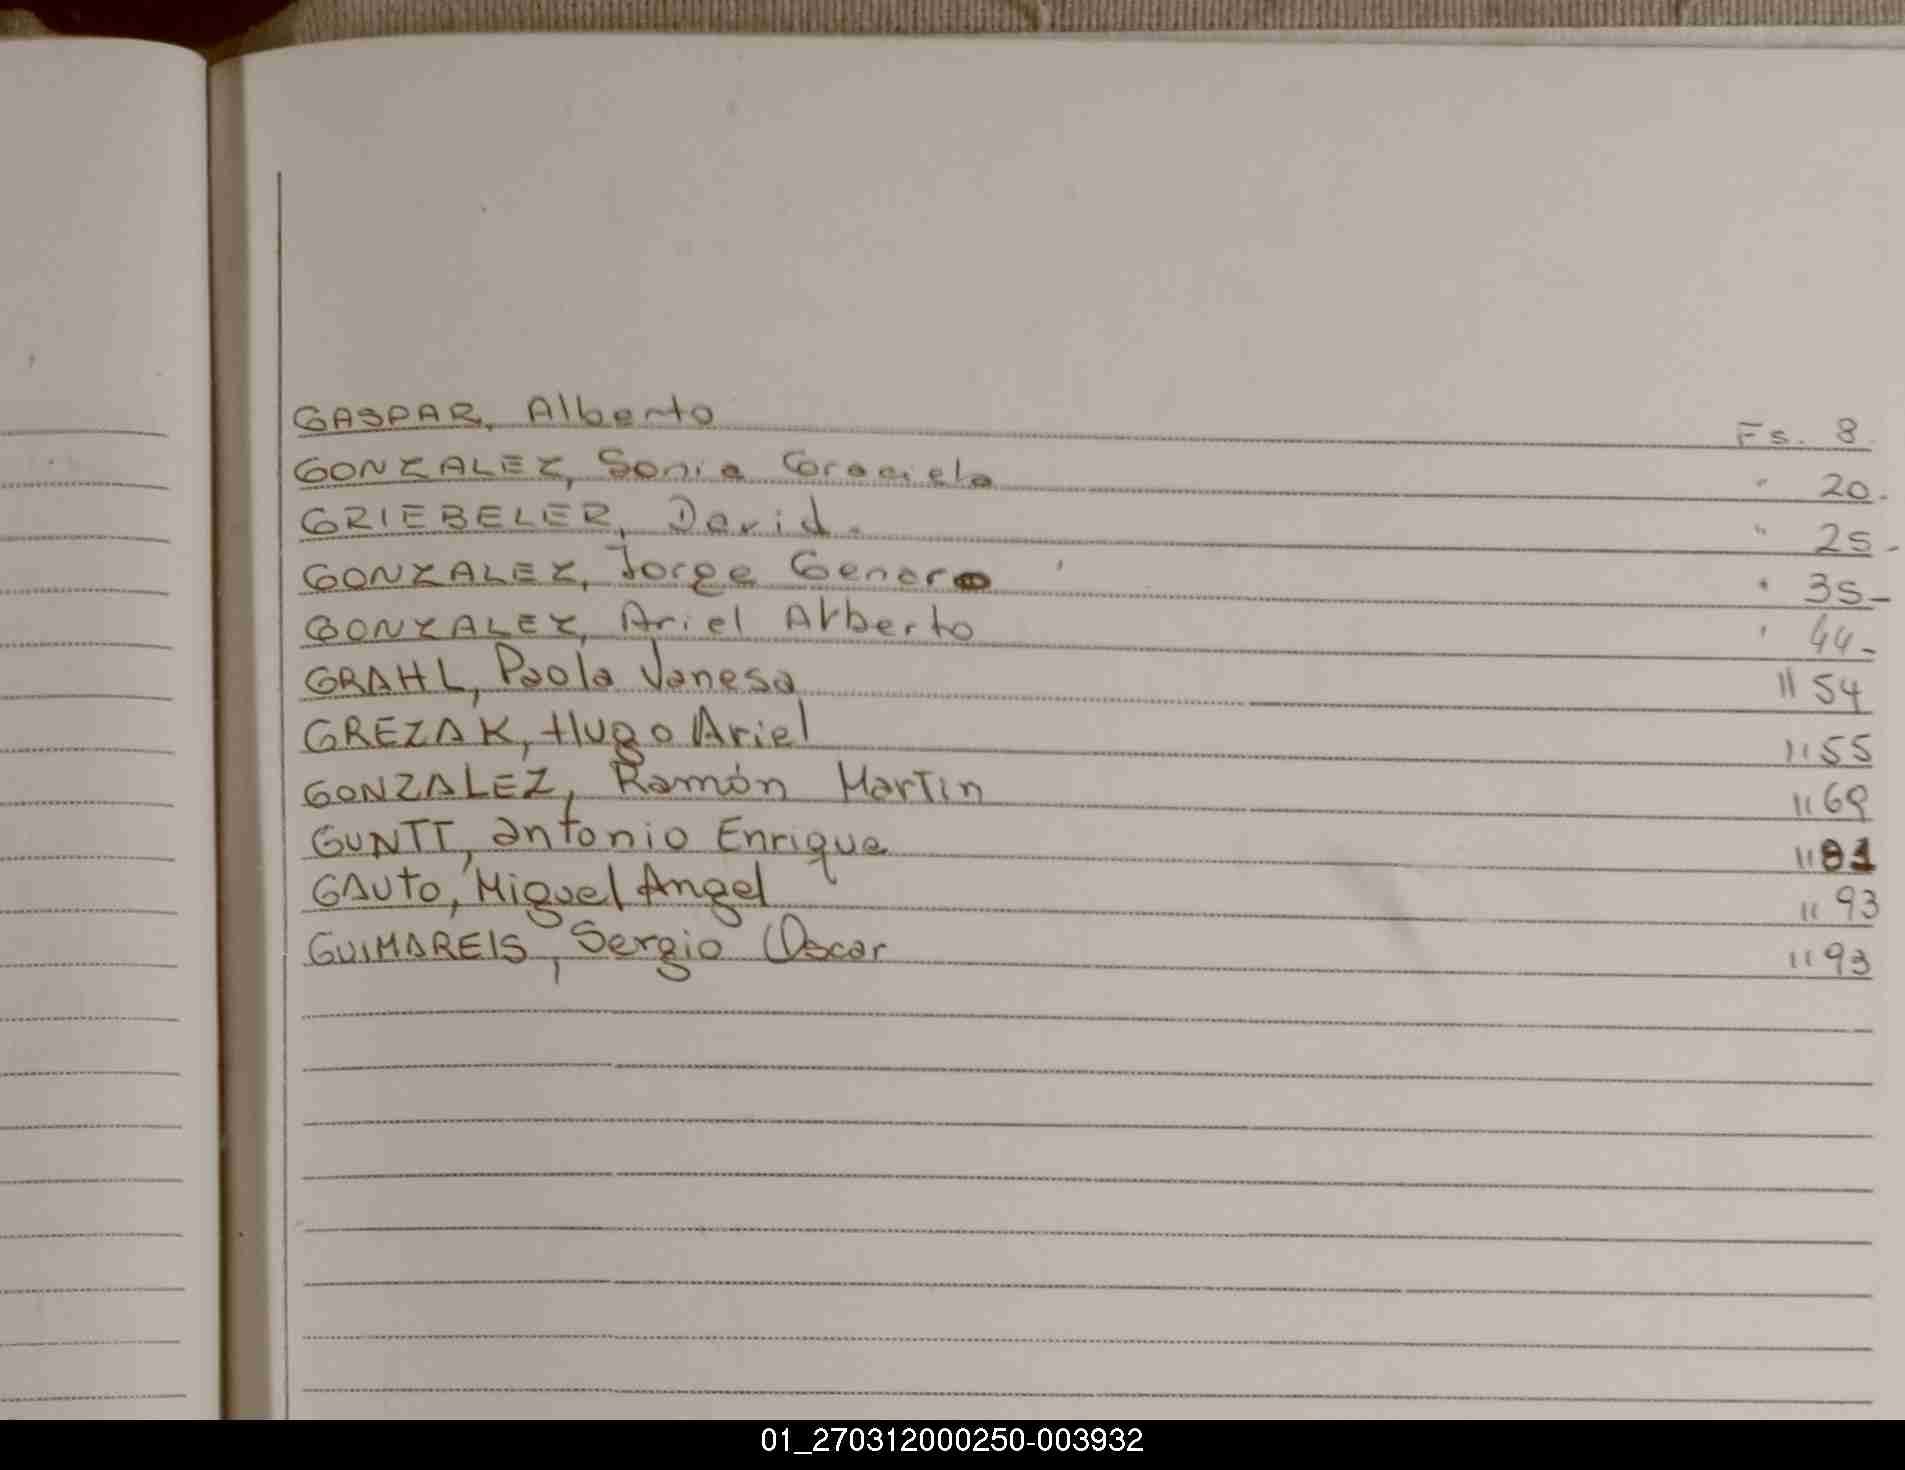 GASPAR, Alberto Fs. 8.
GONZALEZ, Sonia Graciela " 20.
GRIEBELER, David. " 25-
GONZALEZ, Jorge Genaro " 35-
GONZALEZ, Ariel Alberto " 44-
GRAHL, Paola Vanesa " 54
GREZAK, Hugo Ariel " 55
GONZALEZ, Ramón Martin " 69
GUNTT, antonio Enrique " 81
GAUto, Miguel Angel " 93
GUIMAREIS, Sergio Oscar " 93
01_270312000250-003932